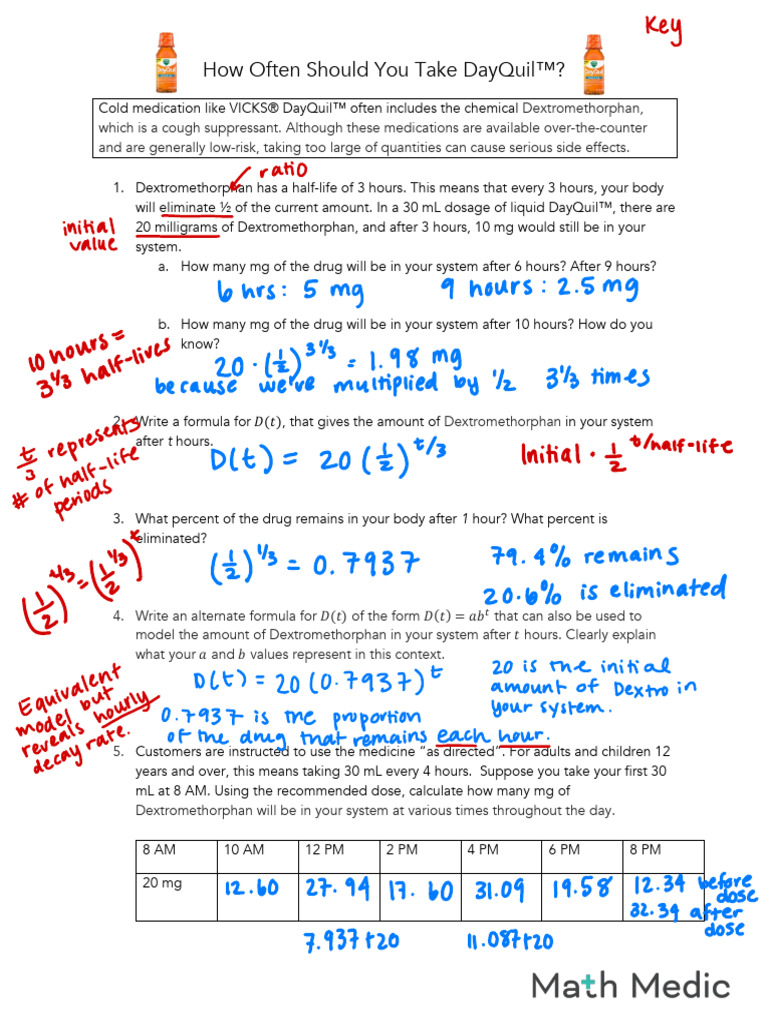 Key
How Often Should You Take DayQuil™?
Cold medication like VICKS® DayQuil™ often includes the chemical Dextromethorphan,
which is a cough suppressant. Although these medications are available over-the-counter
and are generally low-risk, taking too large of quantities can cause serious side effects.
ratio
1. Dextromethorphan has a half-life of 3 hours. This means that every 3 hours, your body
will eliminate ½ of the current amount. In a 30 mL dosage of liquid DayQuil™, there are
initial value
20 milligrams of Dextromethorphan, and after 3 hours, 10 mg would still be in your
system.
a. How many mg of the drug will be in your system after 6 hours? After 9 hours?
6 hrs: 5 mg 9 hours: 2.5 mg
b. How many mg of the drug will be in your system after 10 hours? How do you
know?
10 hours =
3 1/3 half-lives
20 · (1/2)^3 1/3 = 1.98 mg
because we've multiplied by 1/2 3 1/3 times
2. Write a formula for D(t), that gives the amount of Dextromethorphan in your system
after t hours.
t/3 represents
# of half-life
periods
D(t) = 20 (1/2)^t/3 Initial · 1/2^t/half-life
3. What percent of the drug remains in your body after 1 hour? What percent is
eliminated?
(1/2)^t/3 = (1/2^1/3)^t
(1/2)^1/3 = 0.7937 79.4% remains
20.6% is eliminated
4. Write an alternate formula for D(t) of the form D(t) = ab^t that can also be used to
model the amount of Dextromethorphan in your system after t hours. Clearly explain
what your a and b values represent in this context.
Equivalent
model but
reveals hourly
decay rate.
D(t) = 20 (0.7937)^t
0.7937 is the proportion
of the drug that remains each hour.
20 is the initial
amount of Dextro in
your system.
5. Customers are instructed to use the medicine "as directed". For adults and children 12
years and over, this means taking 30 mL every 4 hours. Suppose you take your first 30
mL at 8 AM. Using the recommended dose, calculate how many mg of
Dextromethorphan will be in your system at various times throughout the day.
8 AM 10 AM 12 PM 2 PM 4 PM 6 PM 8 PM
20 mg 12.60 27.94 17.60 31.09 19.58 12.34 before dose
32.34 after dose
7.937+20 11.087+20
Math Medic
DayQuil
DayQuil